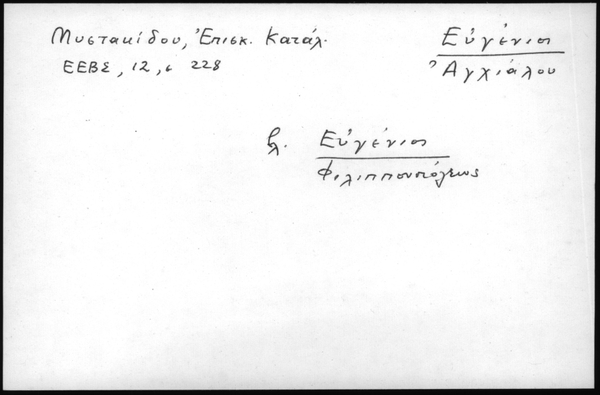 Μυστακίδου, Ἐπισκ. Κατάλ.
ΕΕΒΣ, 12, σ 228
Εὐγένιος
Ἀγχιάλου
βλ. Εὐγένιος
Φιλιππουπόλεως